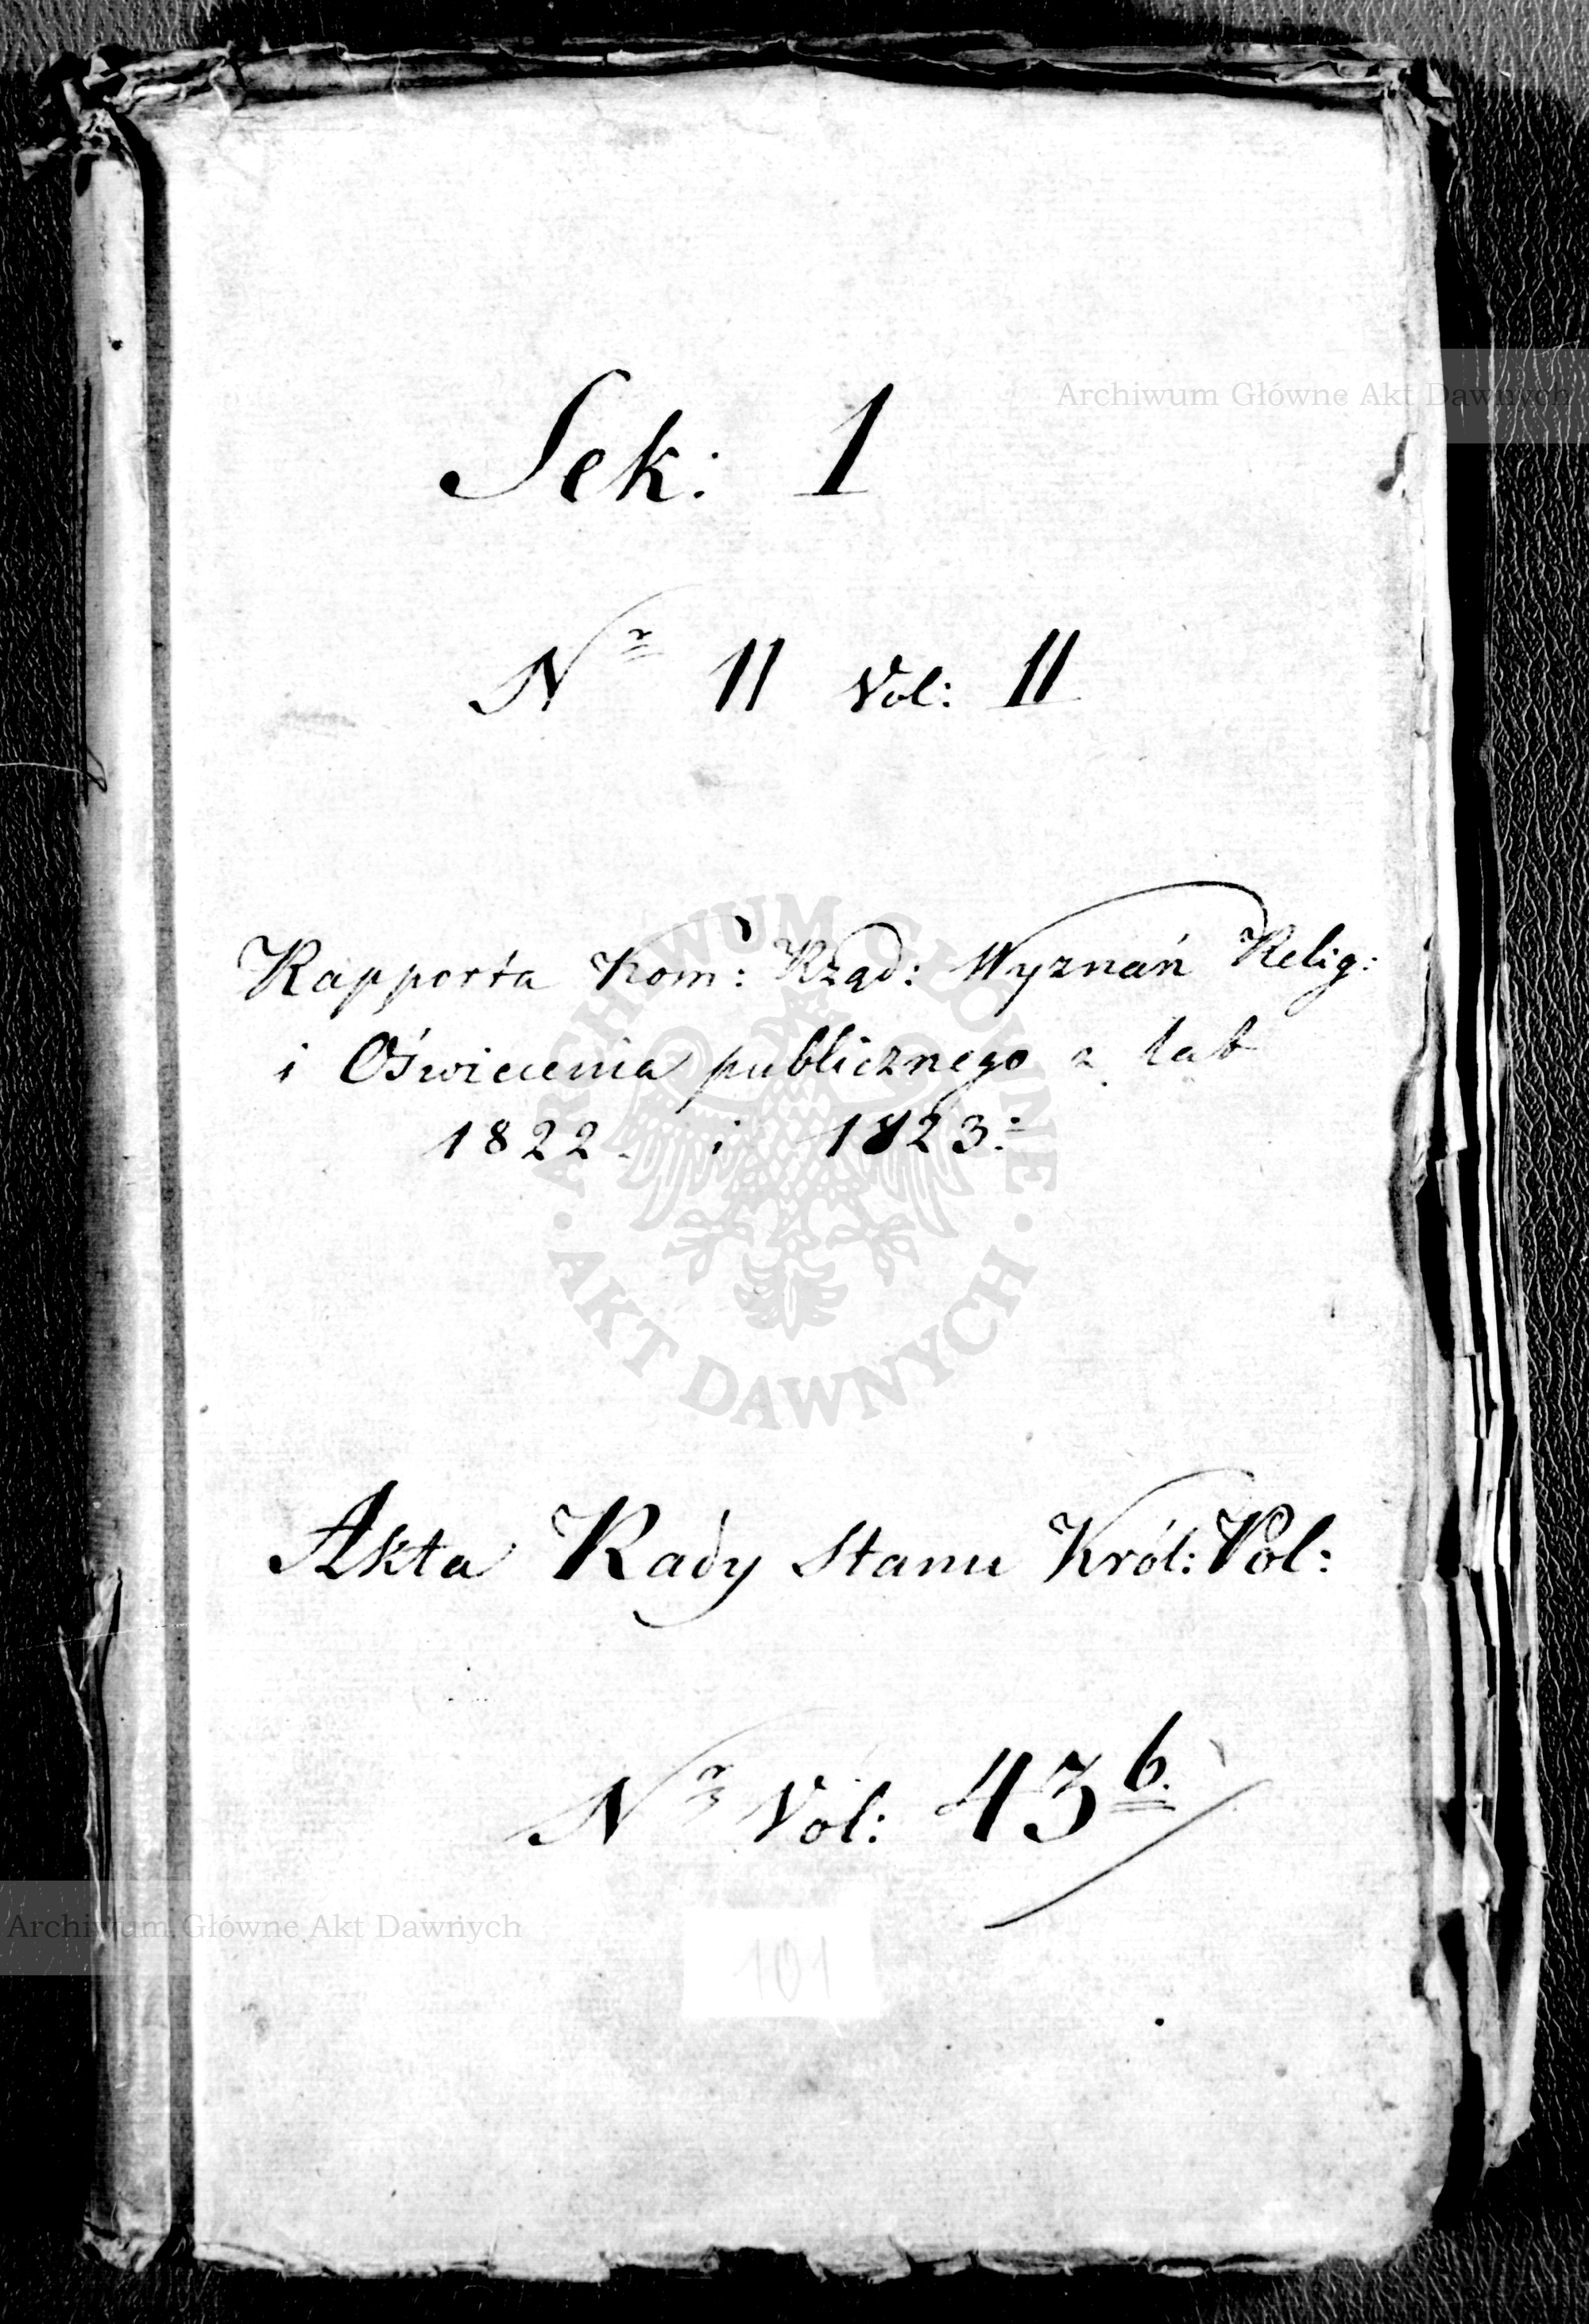 Archiwum Główne Akt Dawnych
Sek: 1
Nr 11 Vol: II
Rapporta Kom: Rząd: Wyznań Relig:
i Oświecenia publicznego z lat
1822. i 1823:
ARCHIWUM GŁÓWNE
· AKT DAWNYCH ·
Akta Rady Stanu Król: Pol:
Nr Vol: 43 b.
Archiwum Główne Akt Dawnych
101